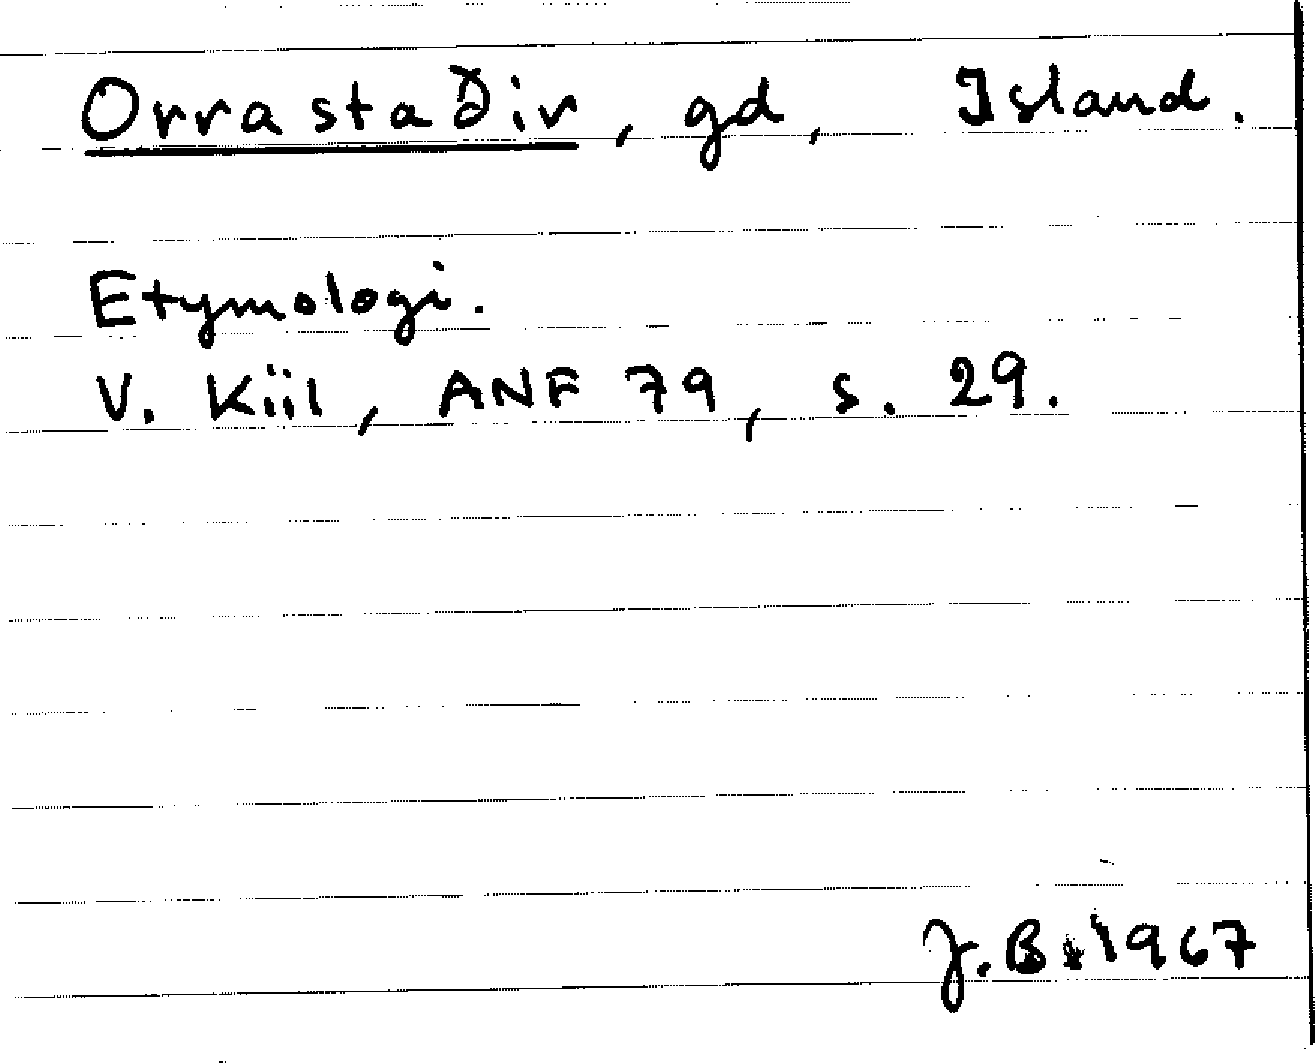 Orrastaðir, gd, Island.
Etymologi.
V. Kiil, ANF 79, s. 29.
J.B. 1967